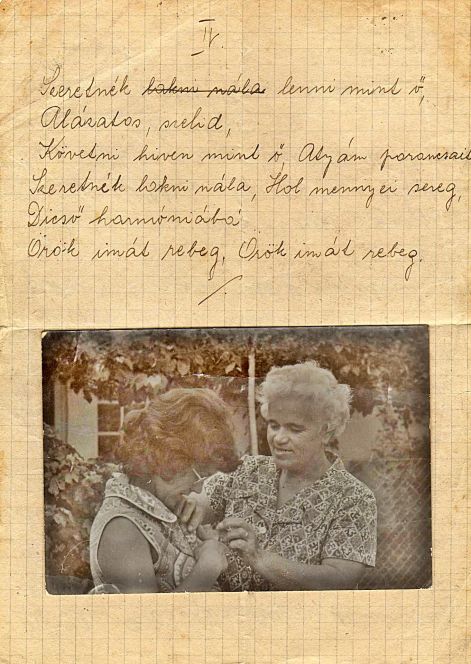 IV.
Szeretnék lakni nála lenni mint ő,
Alázatos, szelid,
Követni hiven mint ő, Atyám parancsait
Szeretnék lakni nála, Hol mennyei sereg,
Dicső harmóniába
Örök imát rebeg, Örök imát rebeg.